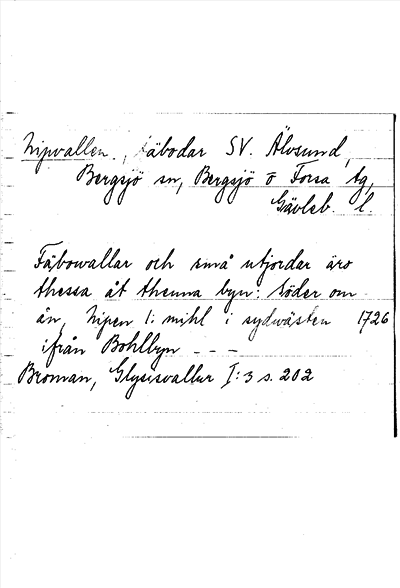 Nipvallen, fäbodar SV. Älvsund,
Bergsjö sn, Bergsjö o Forsa tg,
Gävleb. l.
Fäbowallar och små utjordar äro
thessa åt thenna byn: Söder om
ån, Nipen 1: mihl i sydwästen 1726
ifrån Bohlbyn - - -
Broman, Glysisvallur I:3 s. 202